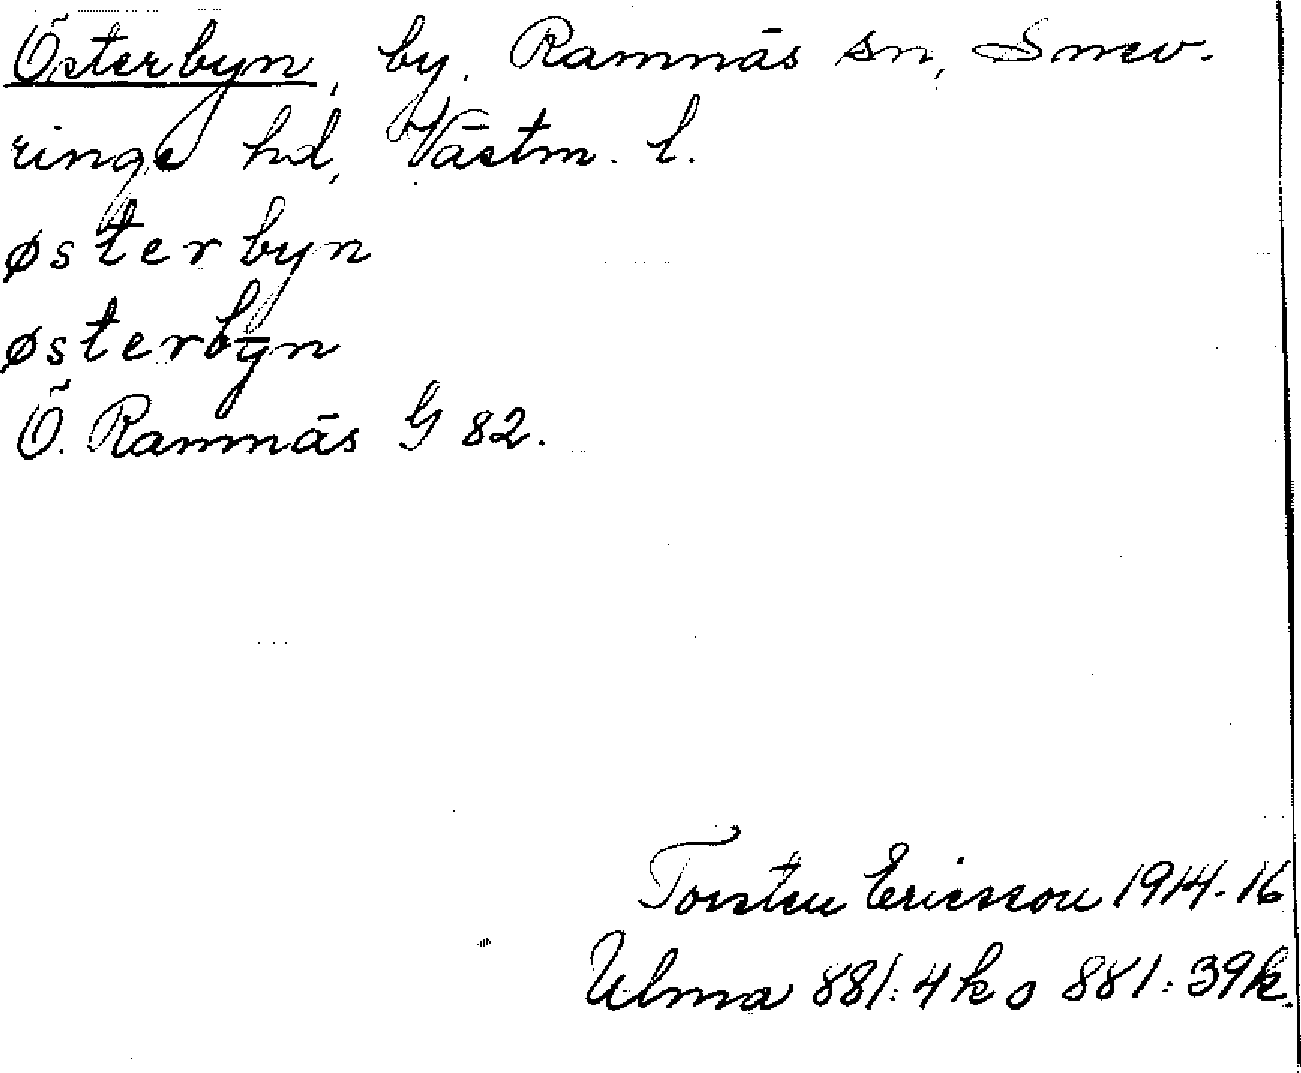 Österbyn, by. Ramnäs sn, Snev-
ringe hd, Västm. l.
østerbyn
østerbȳn
Ö. Ramnäs G 82.
Torsten Ericsson 1914-16
Ulma 881:4k o 881:39k.